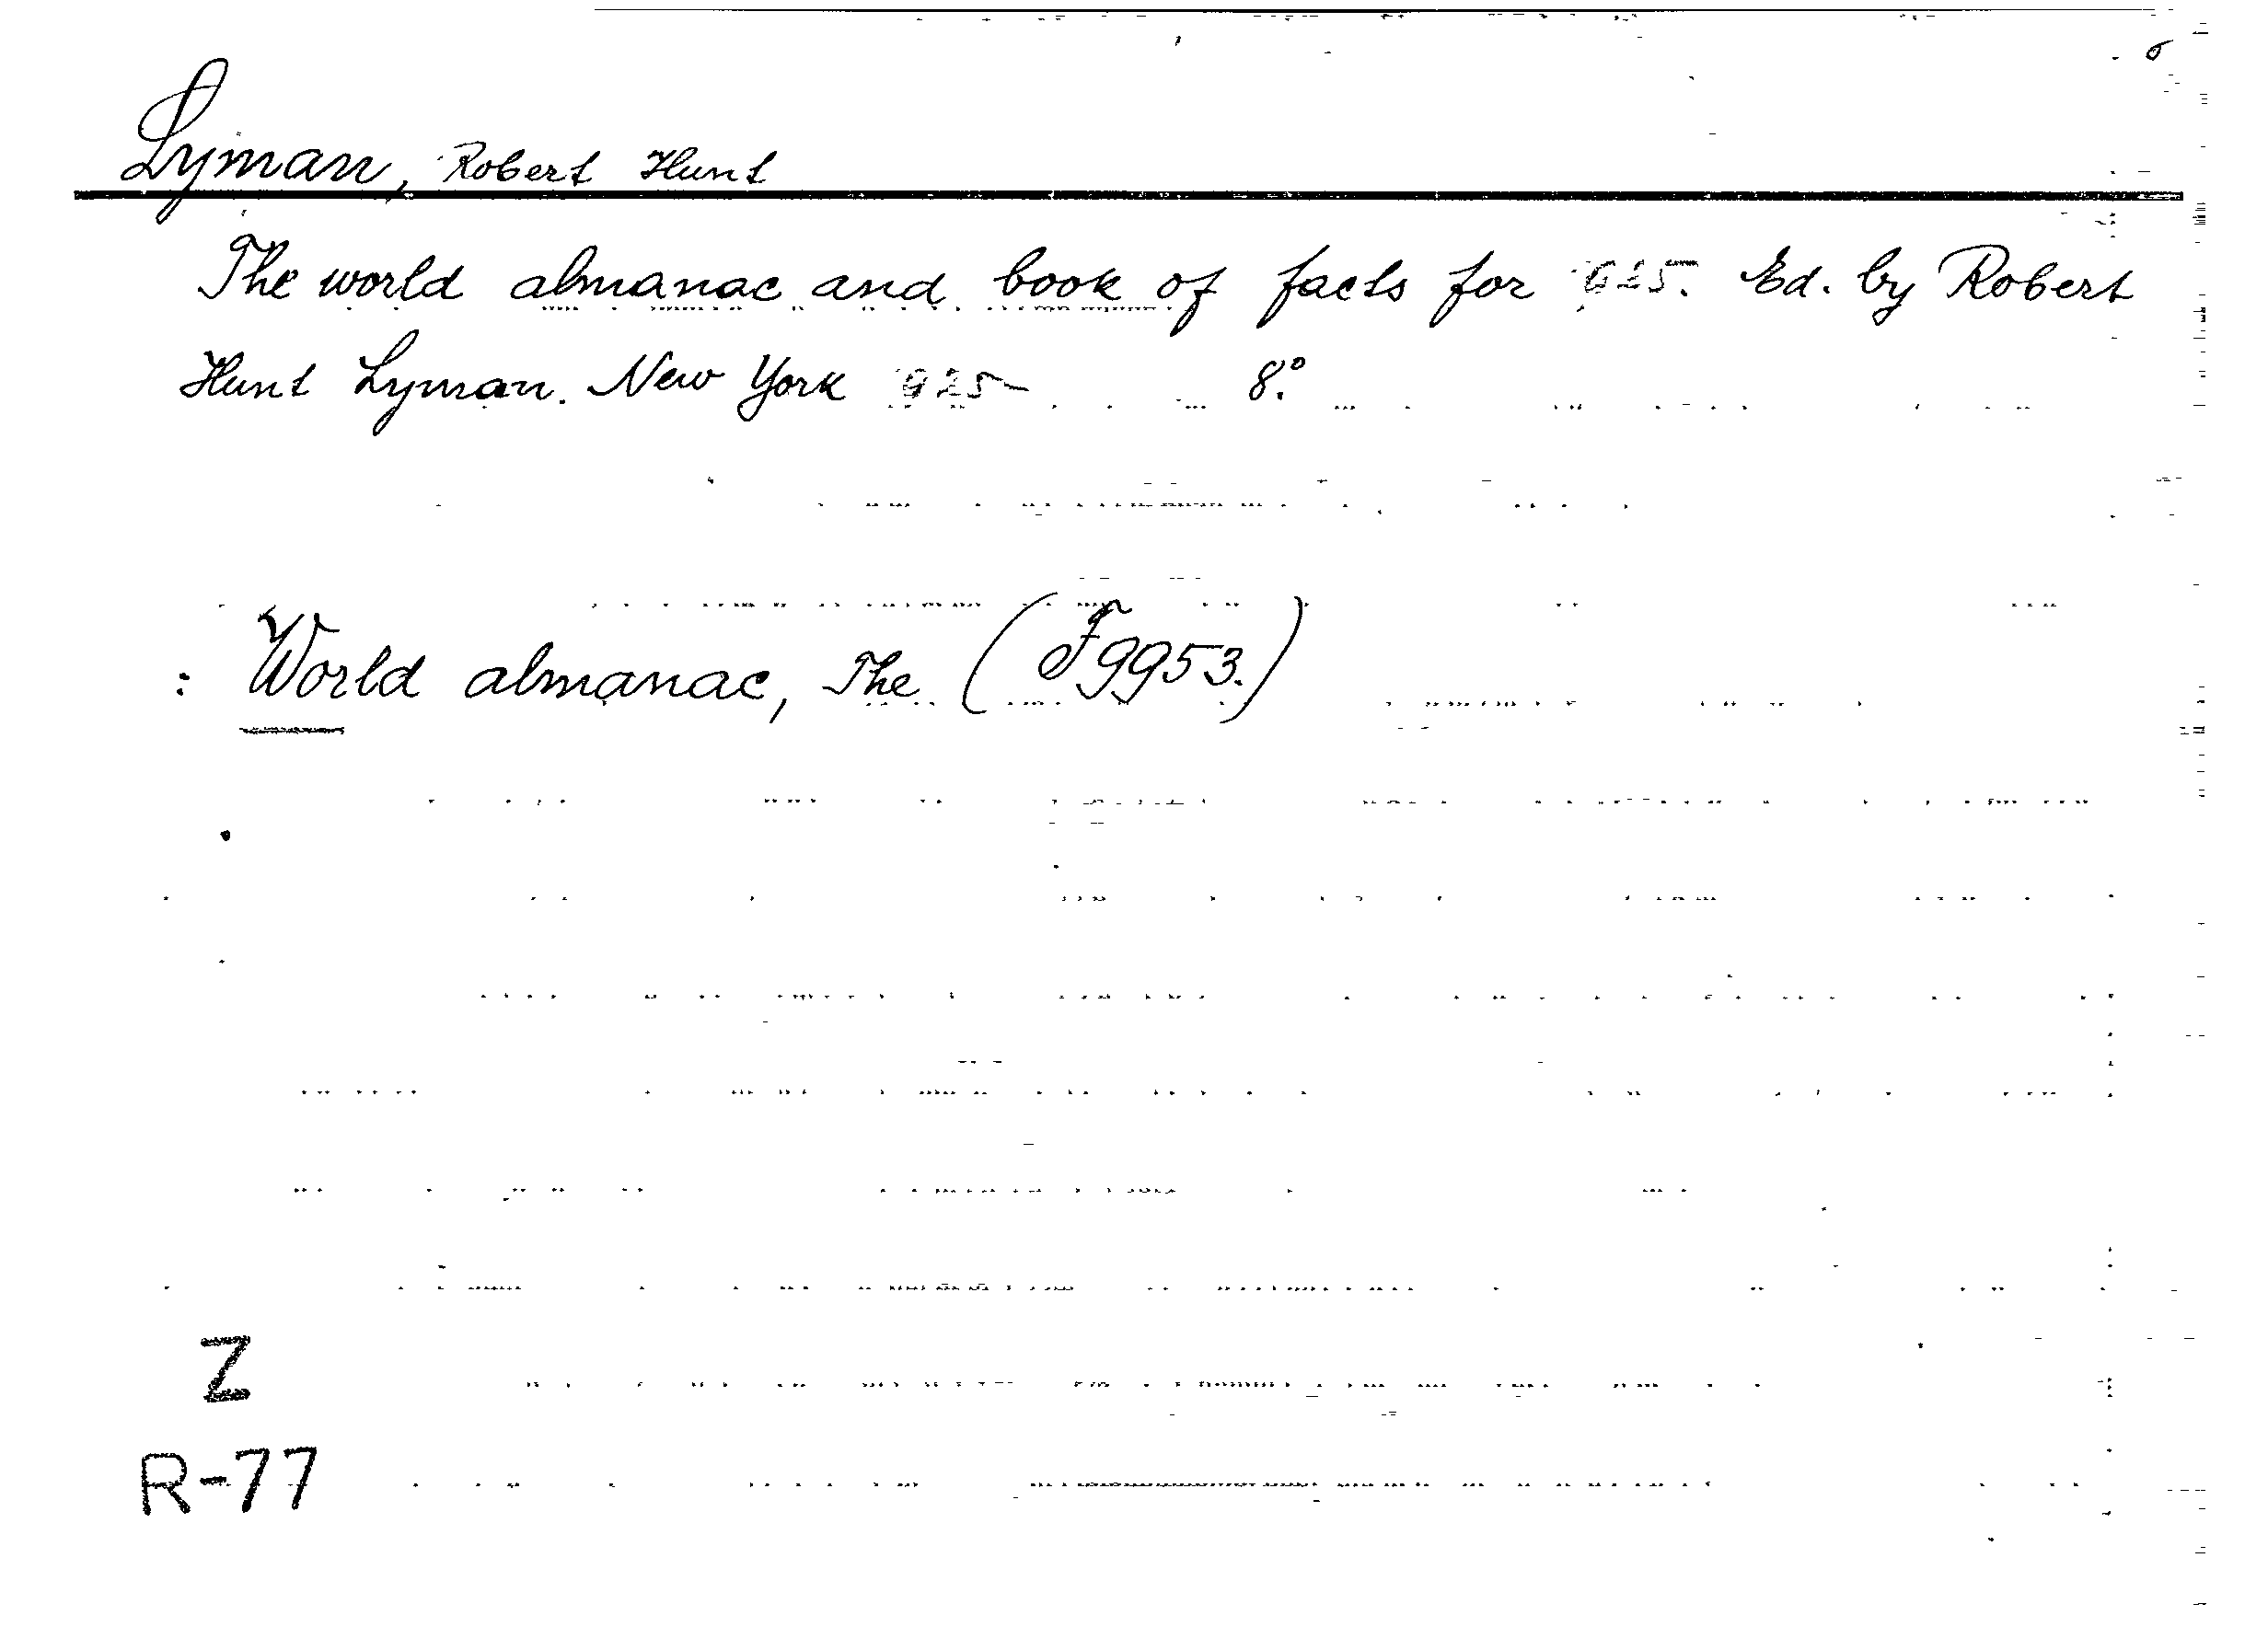 Lyman, Robert Hunt
The world almanac and book of facts for 925. Ed. by Robert
Hunt Lyman. New York 925- 8.°
: World almanac, The (F9953.)
Z
R-77